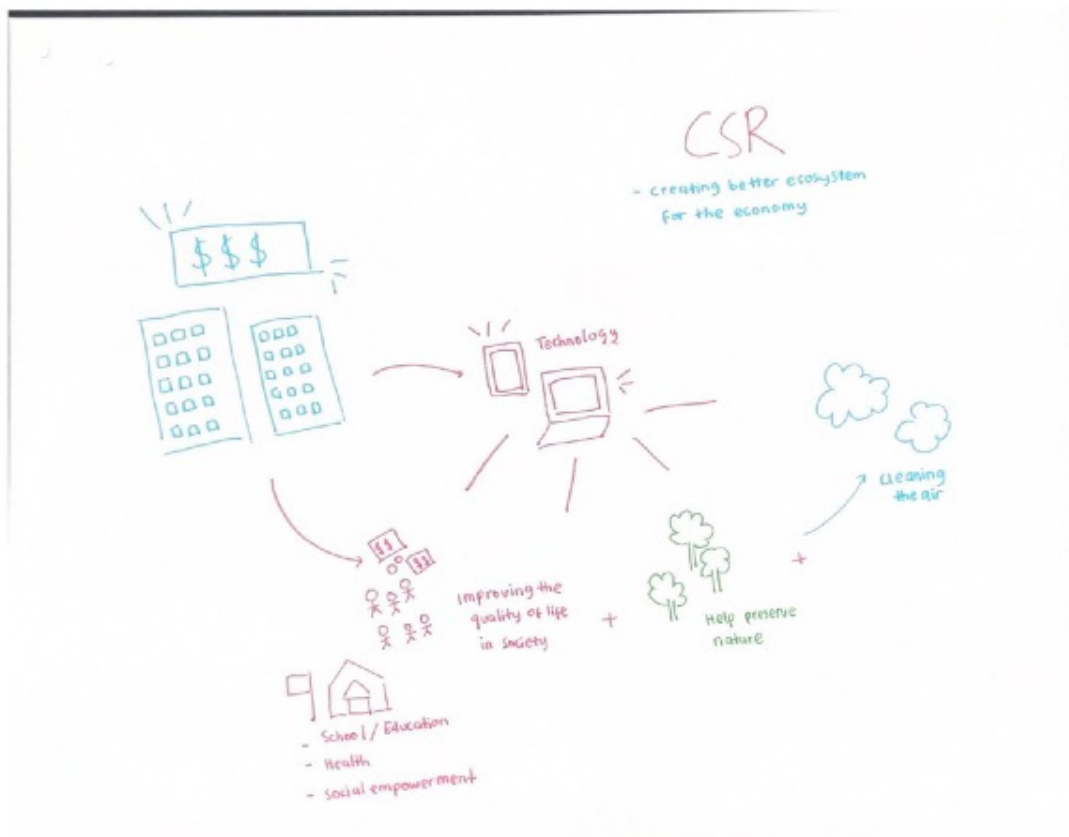 CSR
- creating better ecosystem
for the economy
$ $ $
Technology
cleaning
the air
$$
$$
improving the
quality of life
in society
+
Help preserve
nature
+
- School / Education
- Health
- social empowerment